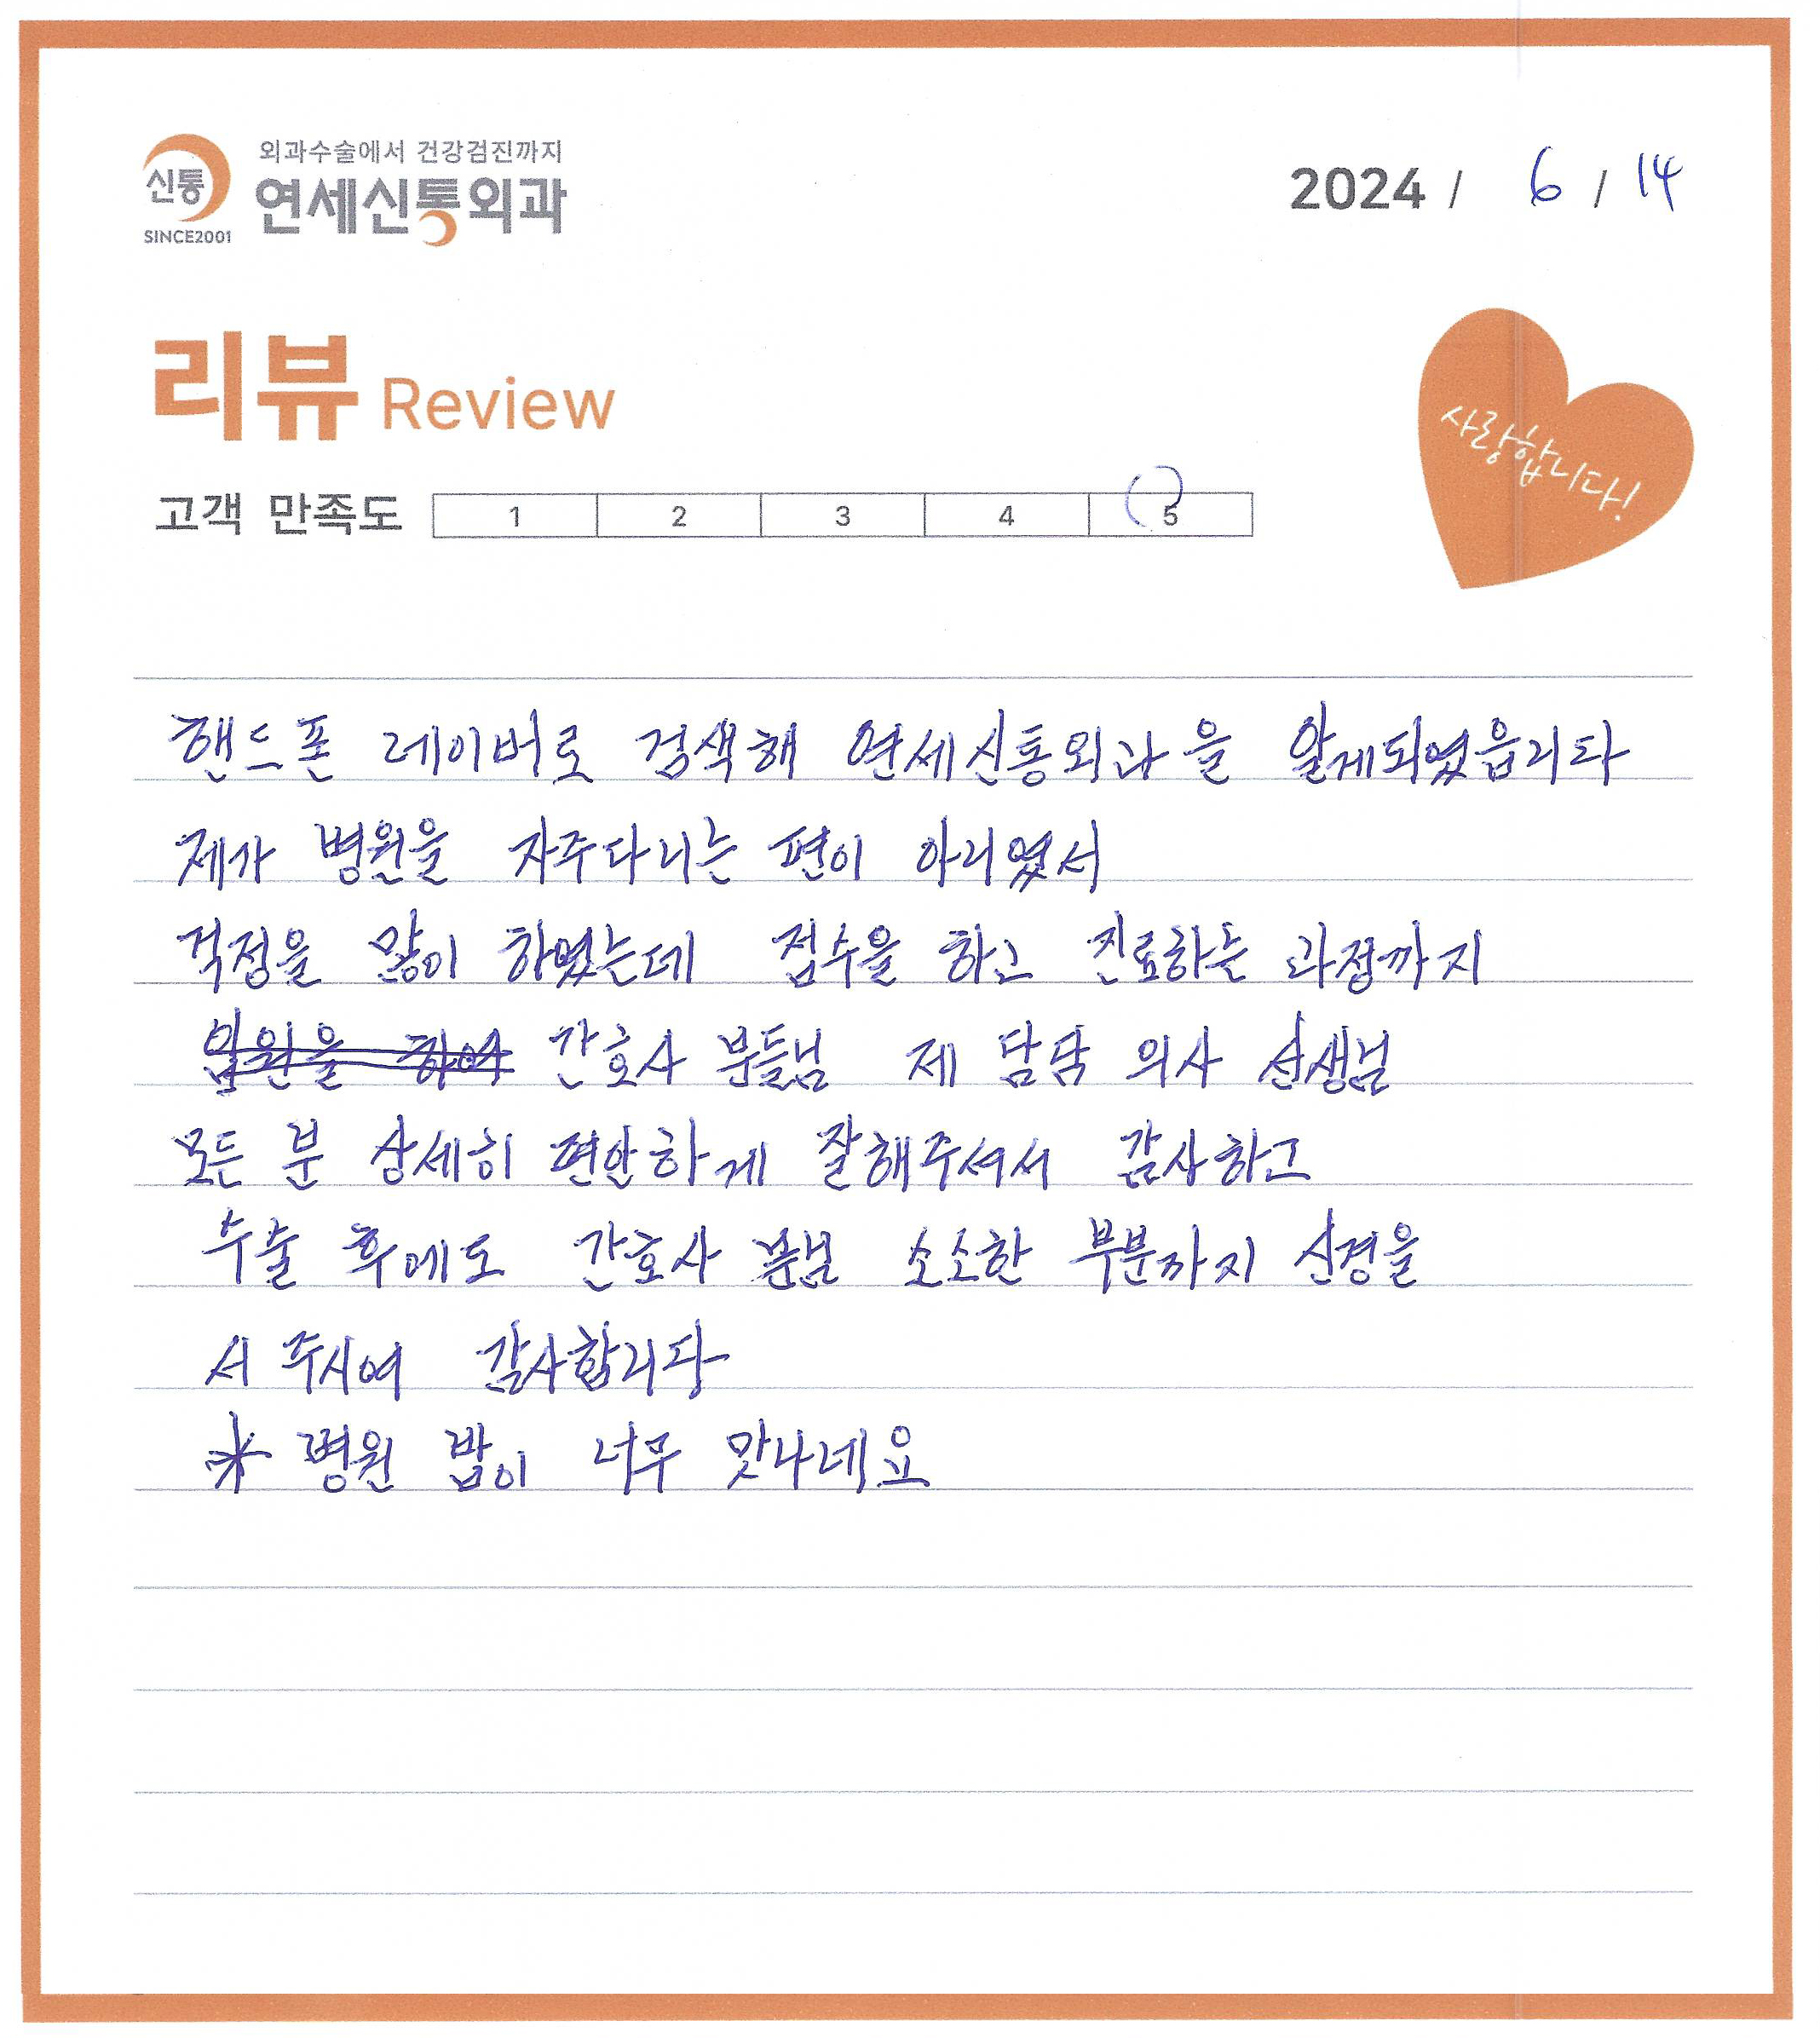 외과수술에서 건강검진까지
신통
연세신통외과
SINCE2001
2024 / 6 / 14
리뷰 Review
사랑합니다!
고객 만족도 1 2 3 4 5
핸드폰 네이버로 검색해 연세신통외과을 알게되였읍니다
제가 병원을 자주다니는 편이 아니였서
걱정을 많이 하였는데 접수을 하고 진료하는 과정까지
입원을 하여 간호사 분들님 제 담담 의사 선생님
모든 분 상세히 편안하게 잘해주셔서 감사하고
수술 후에도 간호사 분님 소소한 부분까지 신경을
서 주시여 감사합니다
* 병원 밥이 너무 맛나네요